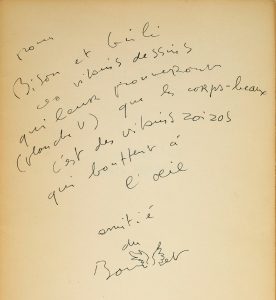 pour
Bison et Gili
ces vilains dessins
qui leurs prouverons
(planche V) que les corps-beaux
c'est des vilains zoizos
qui bouffent à
l'œil
amitié
du